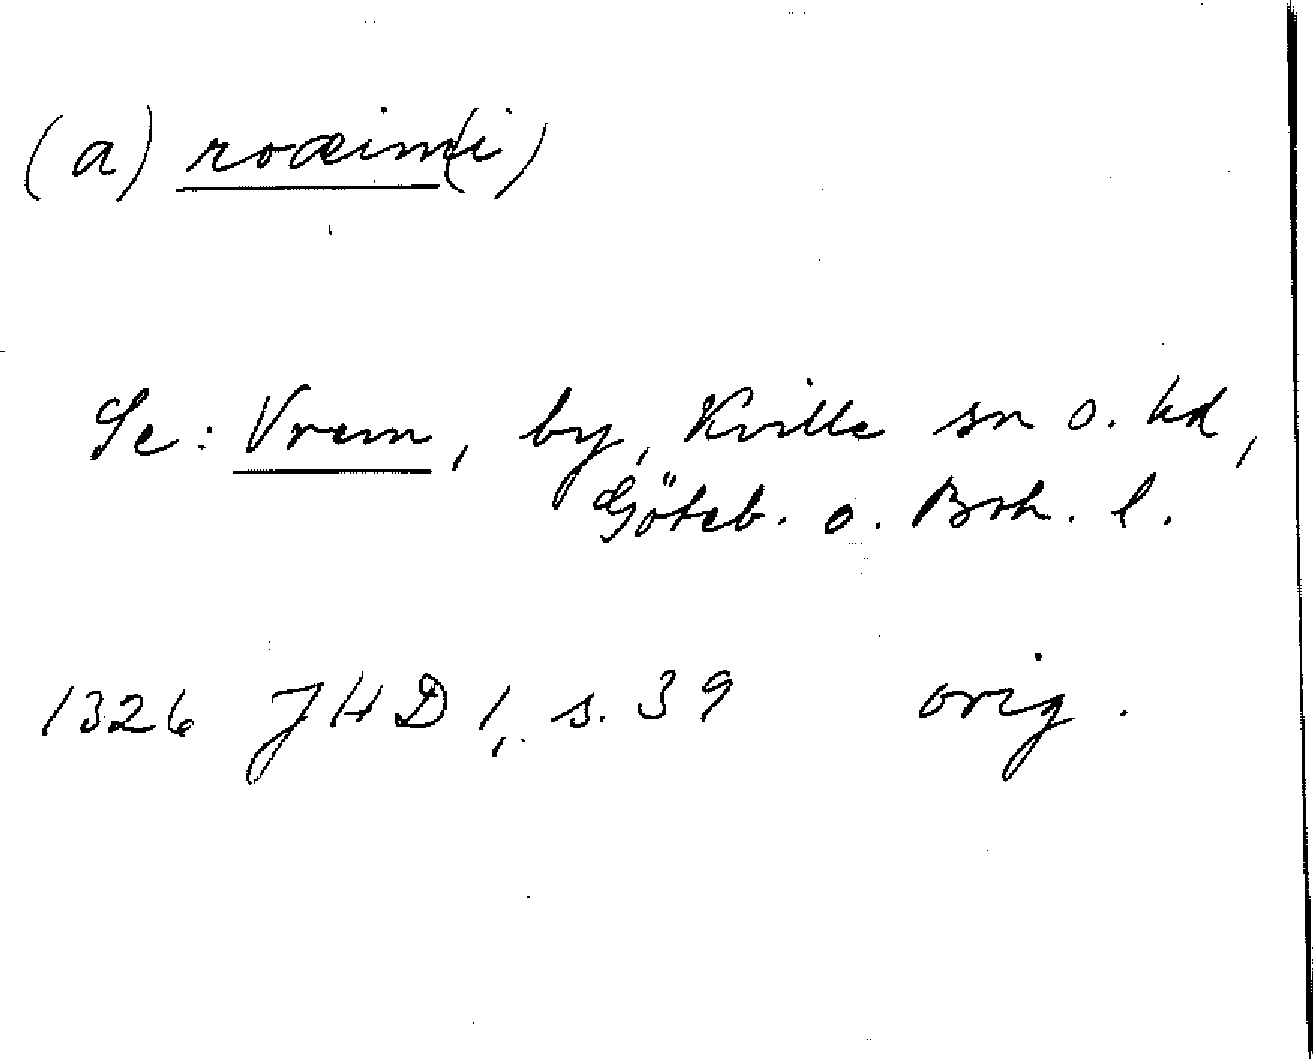 (a) roæim(i)
Se: Vrem, by, Kville sn o. hd,
Göteb. o. Boh. l.
1326 JHD 1, s. 39 orig.